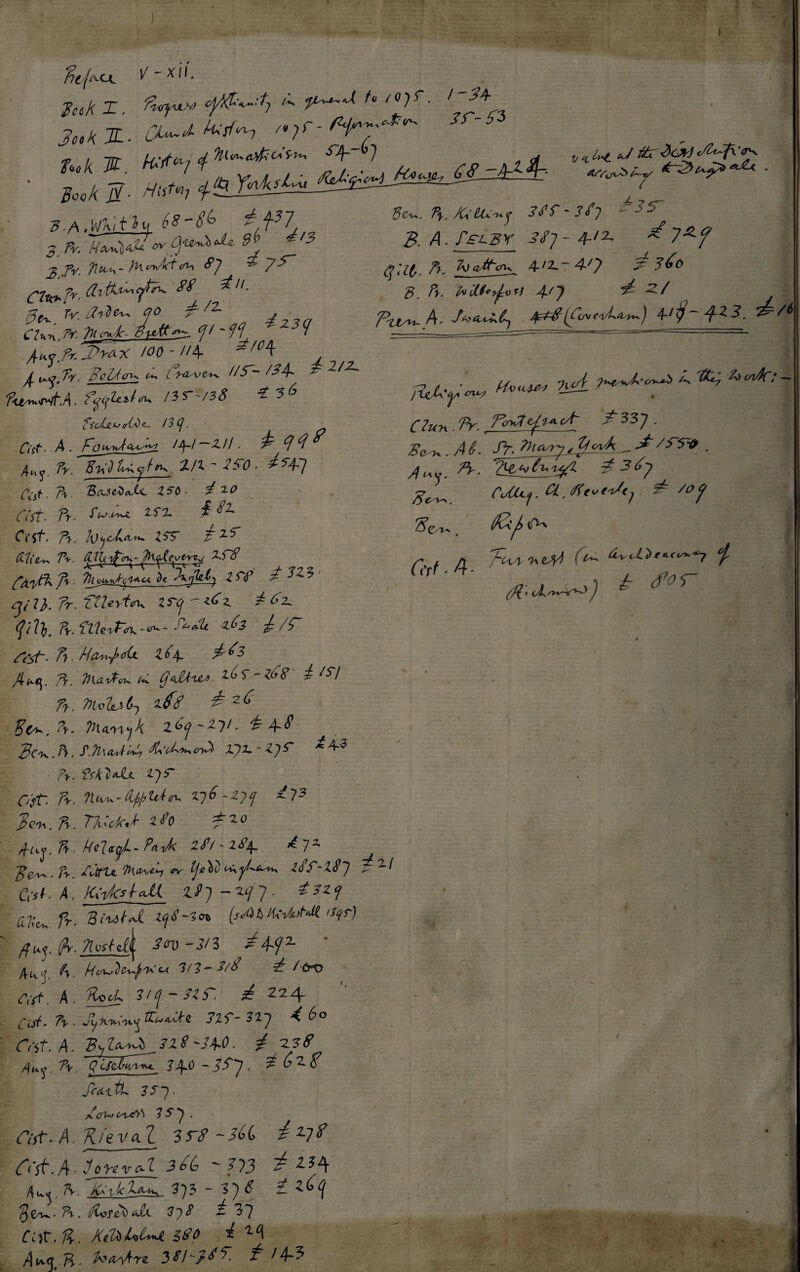 Preface V - XII.
Book I. Progress of Christianity in general to 1075. 1-34
Book II. Church History 1075 - Reformation 35-53
Book III. History of Monasticism 54-67
Book IV. History of the Yorkshire Religious Houses, 68-424.
value at the
B.A. Whitby 68-86 £437
B. Pr. Handale or Grendale 96 £13
B. Pr. Nun-Monkton 87 £75
Clun. Pr. Arthington 88 £11.
Ben. Pr. Arden 90 £12
Clun. Pr. Monk-Bretton 91-99 £239
Aug. Pr. Drax 100-114 £104
Aug. Pr. Bolton in Craven 115-134 £212
Premonst. A. Eggleston 135-138 £36
139.
Cist. A. Fountains 141-211. £998
Aug. Pr. Bridlington 212-250. £547
Cist. Pr. Basedale 250. £20
Cist. Pr. Swine 252 £82
Cist. Pr. Wycham 255 £25
Alien Pr. Allerton-Mauleverer 258
Carth. Pr. Mountgrace de Ingleby 258 £323
Gilb. Pr. Ellerton 259-262 £62
Gilb. Pr. Ellerton-on-Swale 263 £15
Cist. Pr. Hampole 264 £63
Aug. Pr. Marton in Galtres 265-268 £151
Pr. Molesby 268 £26
Ben. Pr. Marryk 269-271. £48
Ben. Pr. S. Martin, Richmond 272-275 £43
Pr. Eskdale 275
Cist. Pr. Nun-Appleton 276-279 £73
Ben. Pr. Thicket 280 £20
Aug. Pr. Helagh-Park 281-284 £72
Ben. Pr. Little Mareis or Yeddingham 285-287 £21
Cist. A. Kirkstall 287-297. £329
Alien Pr. Birstal 298-300 (sold to Kirkstall 1395)
Aug. Pr. Nostell 300-313 £492
Aug. Pr. Haudenprice 313-318 £100
Cist. A. Roch 319-325. £224
Cist. Pr. Synning Thwaite 325-327 £60
Cist. A. Byland 328-340. £238
Aug. Pr. Gisburne 340-357. £628
Scarth 357.
357.
Cist. A. Rieval 358-366 £278
Cist. A. Joreval 366-373 £234
Aug. Pr. Kirkham 373-378 £269
Ben. Pr. Rosedale 378 £37
Cist. Pr. Keldholme 380 £29
Aug. Pr. Wartre 381-385. £143
Ben. Pr. Killing 385-387 £35
B. A. SELBY 387-412 £729
Gilb. Pr. Watton 412-417 £360
B. Pr. Wilberfoss 417 £21
Prem. A. Swainby (Coverham) 419-423. £16
Religious Houses not mentioned in this work:-
Clun. Pr. Pontefract £337.
Ben. Ab. St. Mary, York £1550.
Aug. Pr. Newburgh £367
Ben. Colleg. Ch. Beverley £109
Ben. Ripon
Cist. A. Furness (in Archdeaconry of Richmond) £805